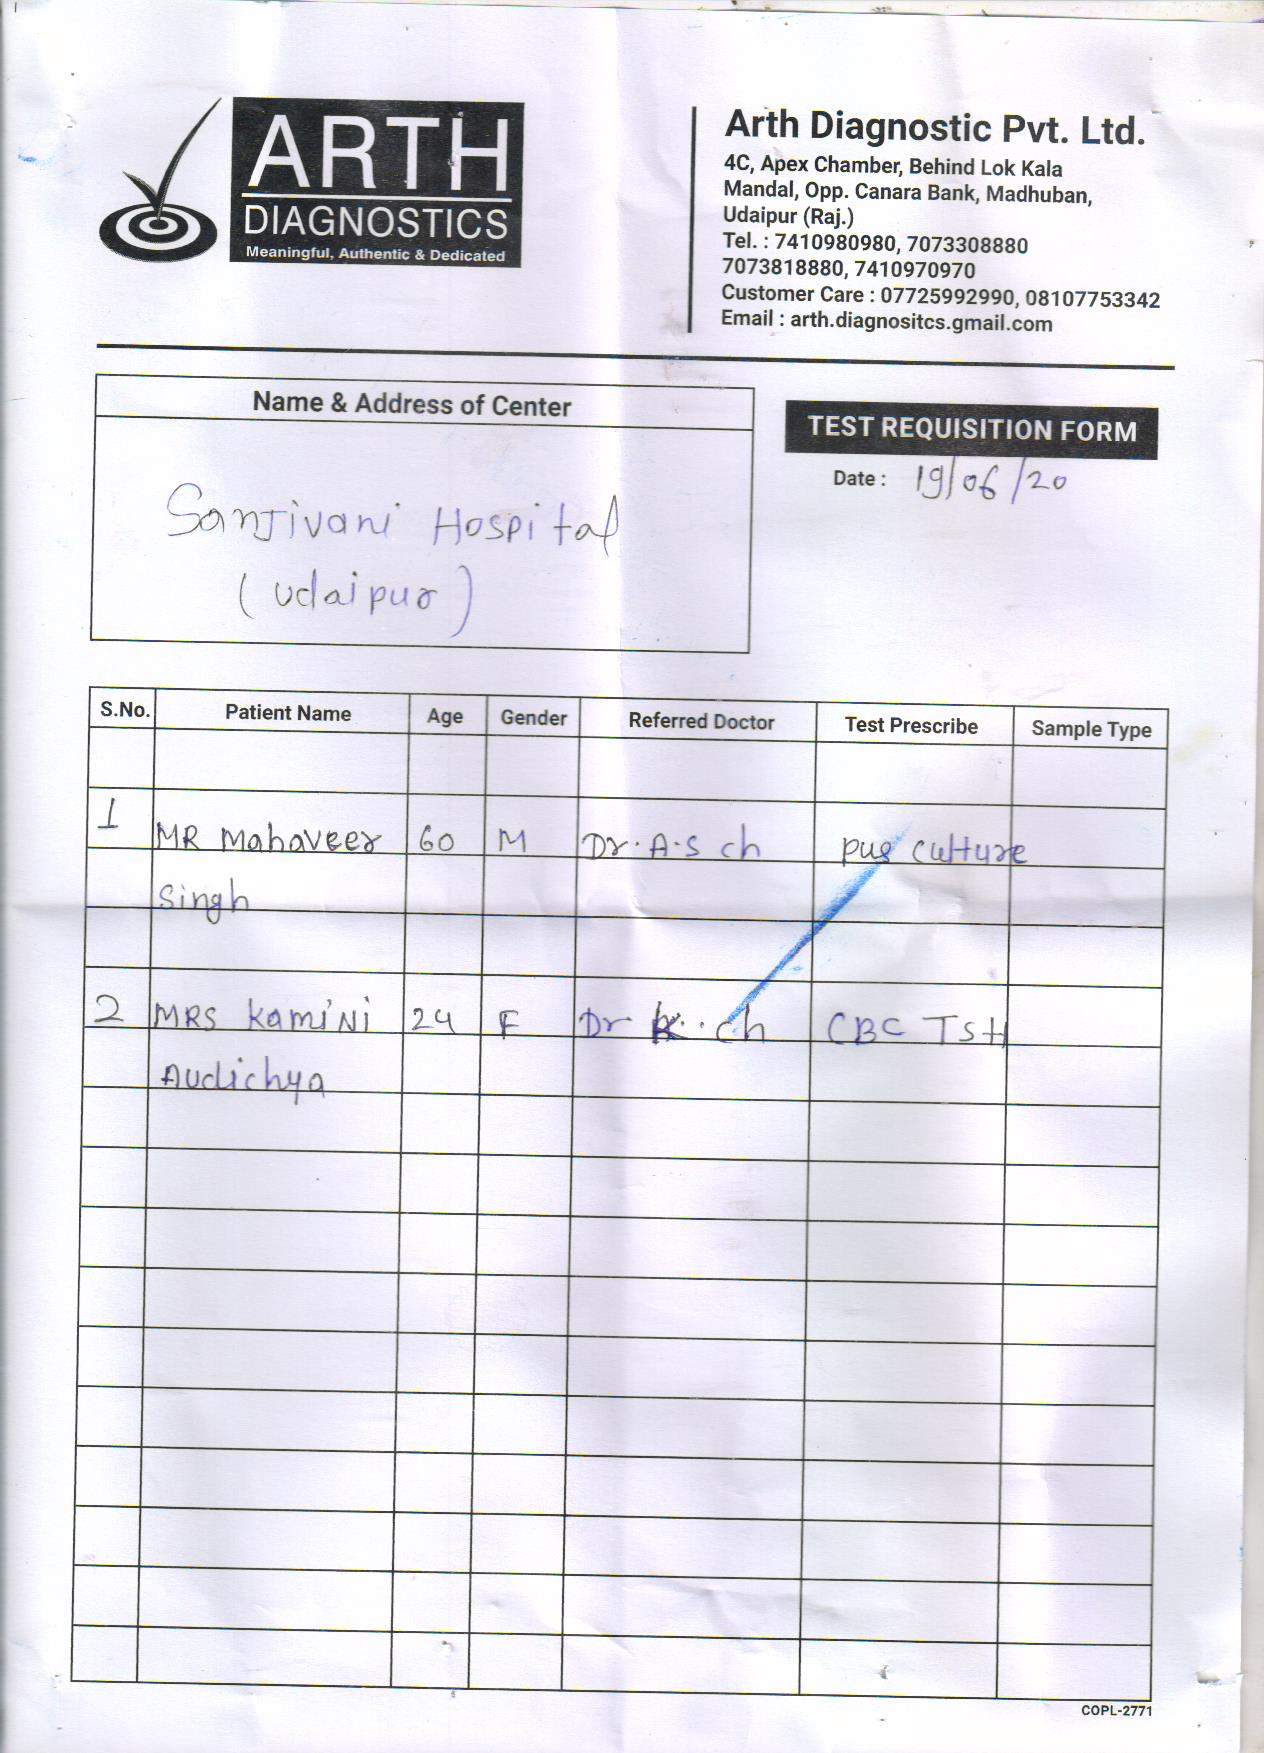 ARTH
DIAGNOSTICS
Meaningful, Authentic & Dedicated
Arth Diagnostic Pvt. Ltd.
4C, Apex Chamber, Behind Lok Kala
Mandal, Opp. Canara Bank, Madhuban,
Udaipur (Raj.)
Tel. : 7410980980, 7073308880
7073818880, 7410970970
Customer Care : 07725992990, 08107753342
Email : arth.diagnositcs.gmail.com
Name & Address of Center
Sanjivani Hospital
(Udaipur)
TEST REQUISITION FORM
Date : 19/06/20
S.No. Patient Name Age Gender Referred Doctor Test Prescribe Sample Type
1 MR Mahaveer 60 M Dr. A.S ch pus culture
Singh
2 MRS Kamini 24 F Dr K. ch CBC TSH
Audichya
COPL-2771